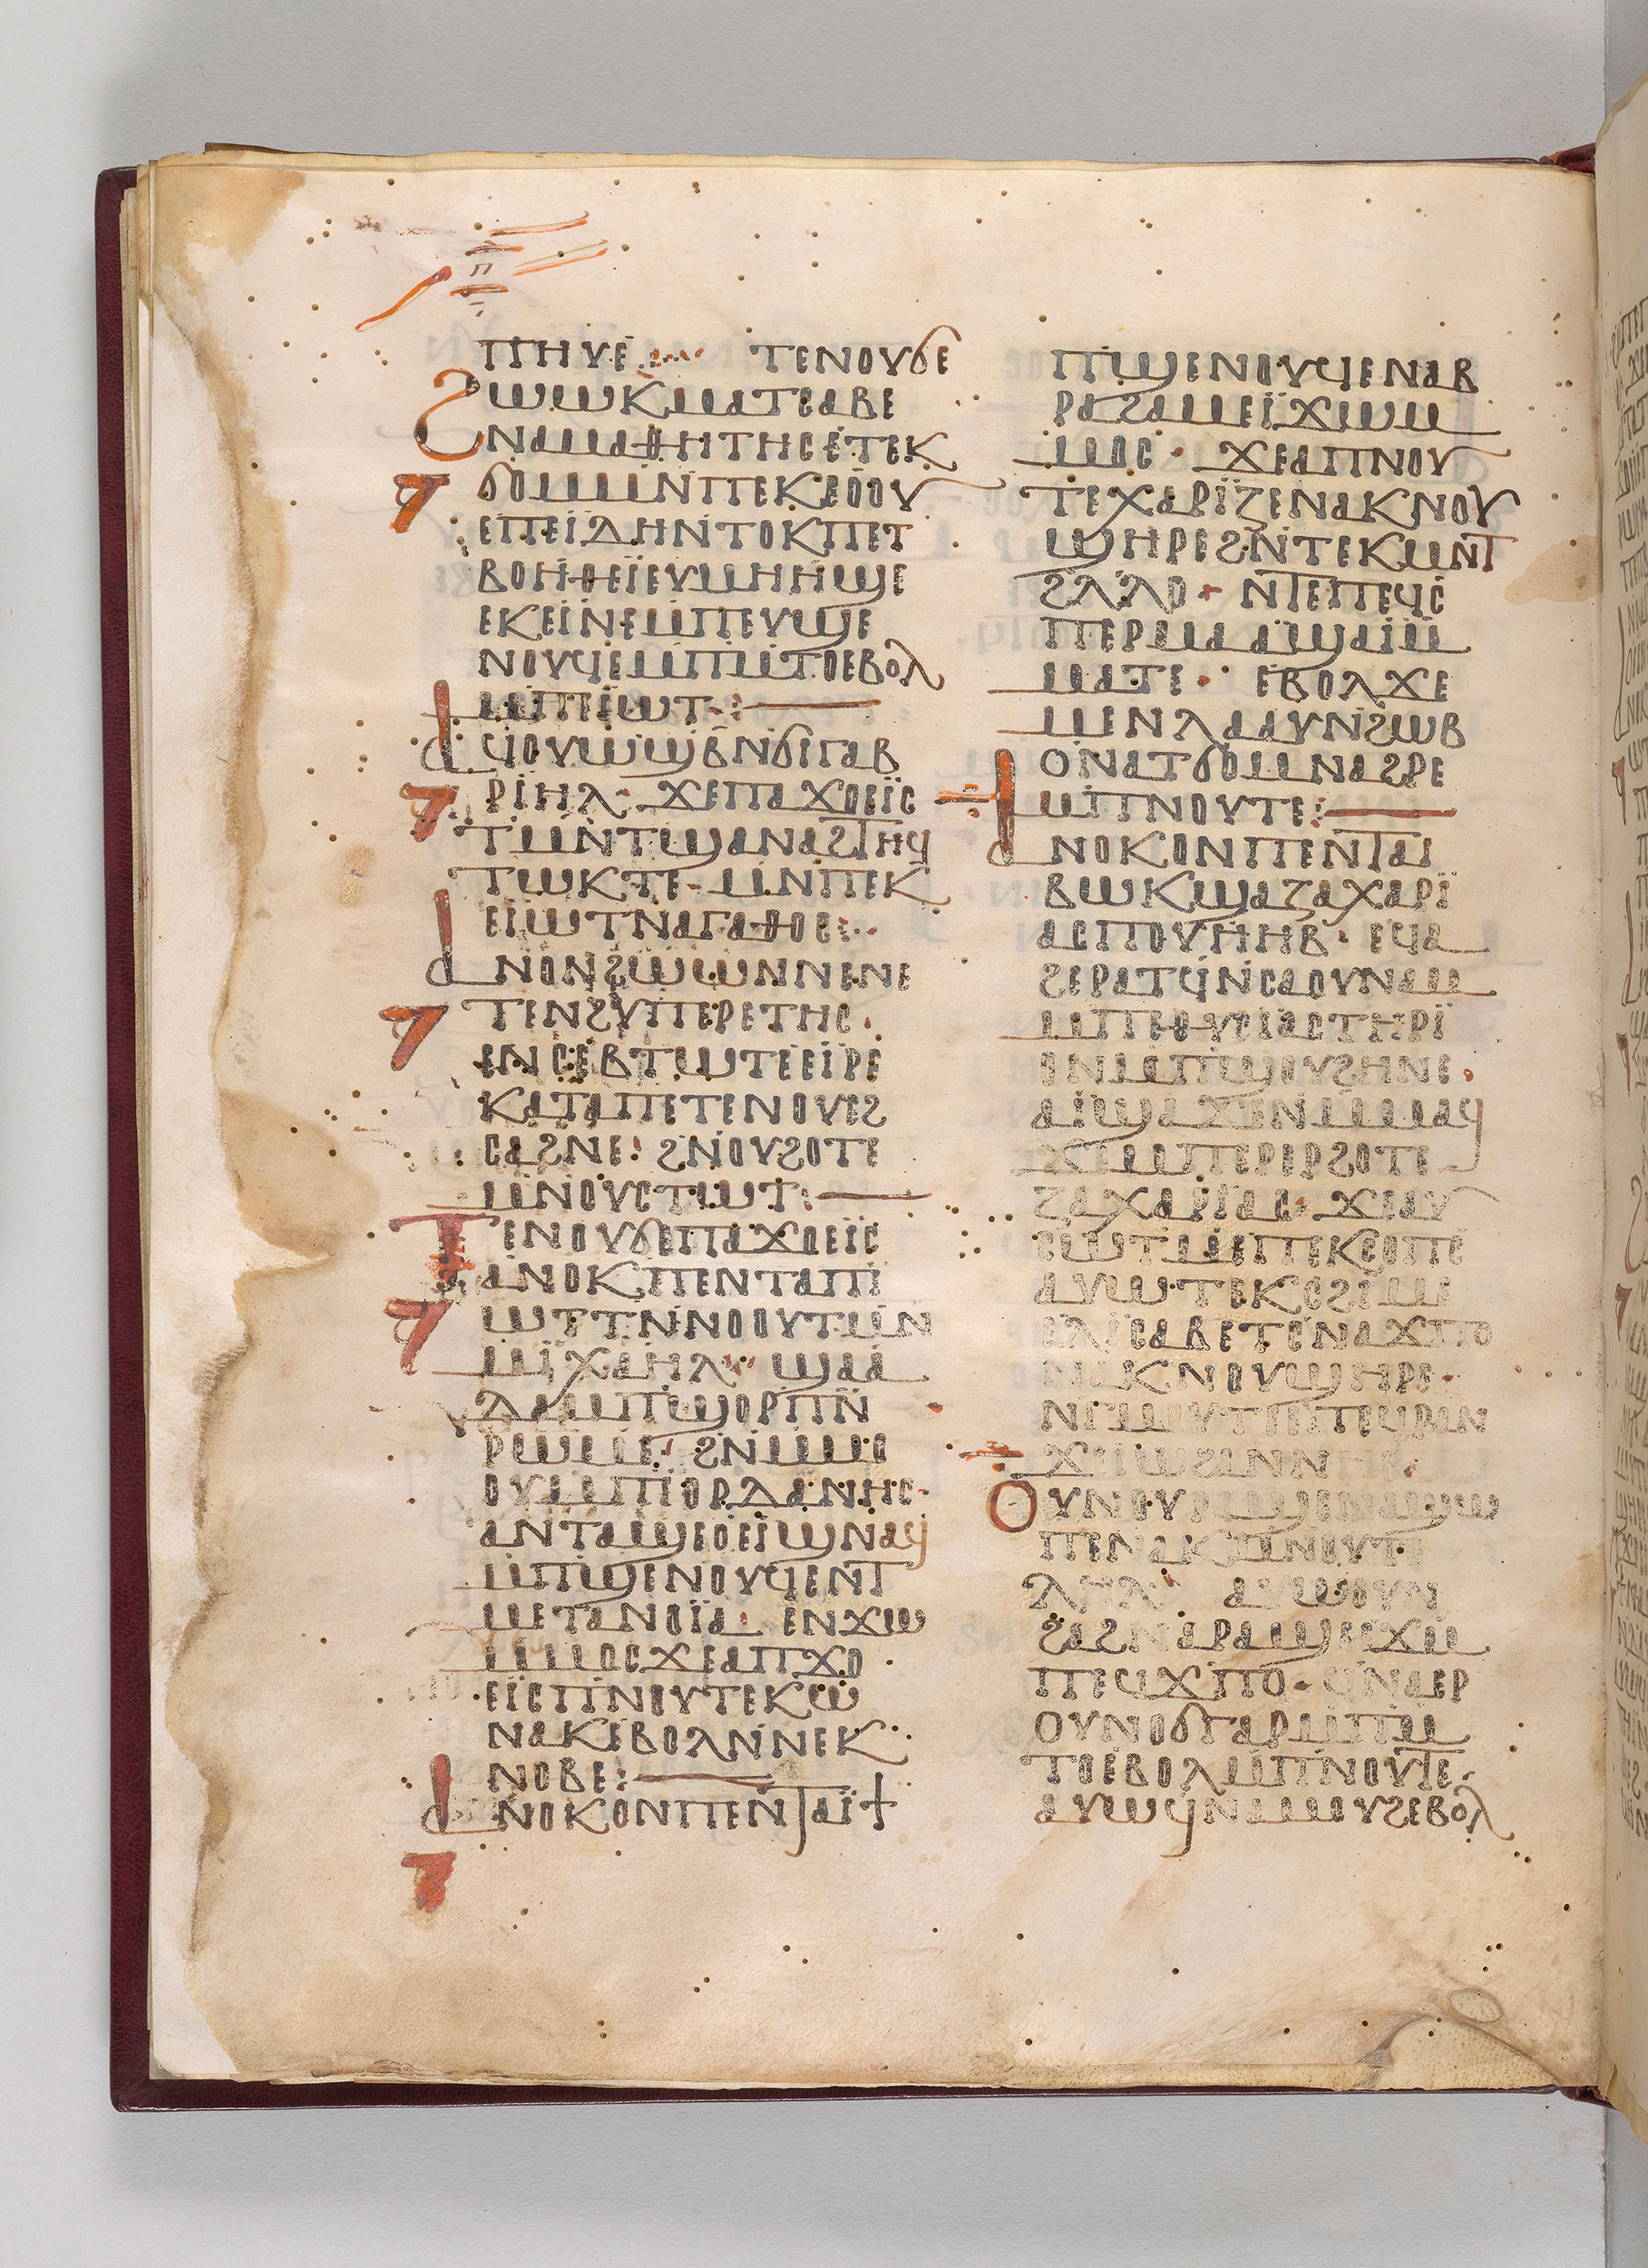 ⲡ
ⲡⲏⲩⲉ ⲧⲉⲛⲟⲩϭⲉ
ϩⲱⲱⲕ ⲙⲁⲧⲥⲁⲃⲉ
ⲛⲁⲙⲁⲑⲏⲧⲏⲥ ⲉⲧⲉⲕ
ϭⲟⲙ ⲙⲛ ⲡⲉⲕⲉⲟⲟⲩ
ⲉⲡⲉⲓⲇⲏ ⲛⲧⲟⲕ ⲡⲉⲧ
ⲃⲟⲏⲑⲉⲓ ⲉⲩⲙⲏⲏϣⲉ
ⲉⲕⲉⲓⲛⲉ ⲙⲡⲉⲩϣⲉ
ⲛⲟⲩϥⲉ ⲙⲡⲙⲧⲟ ⲉⲃⲟⲗ
ⲙⲡⲉⲓⲱⲧ:
ⲁϥⲟⲩⲱϣⲃ ⲛϭⲓ ⲅⲁⲃ
ⲣⲓⲏⲗ ϫⲉ ⲡⲁϫⲟⲉⲓⲥ
ⲧⲙⲛⲧϣⲁⲛⲁϩⲧⲏϥ
ⲧⲱⲕ ⲧⲉ· ⲙⲛ ⲡⲉⲕ
ⲉⲓⲱⲧ ⲛⲁⲅⲁⲑⲟⲥ:
ⲁⲛⲟⲛ ϩⲱⲱⲛ ⲛⲉⲛⲉ
ⲧⲉⲛϩⲩⲡⲉⲣⲉⲧⲏⲥ·
ⲉⲛⲥⲉⲃⲧⲱⲧ ⲉⲉⲓⲣⲉ
ⲕⲁⲧⲁ ⲡⲉⲧⲉⲛⲟⲩⲉϩ
ⲥⲁϩⲛⲉ: ϩⲛ ⲟⲩϩⲟⲧⲉ
ⲙⲛ ⲟⲩⲥⲧⲱⲧ:
ⲧⲉⲛⲟⲩϭⲉ ⲡⲁϫⲟⲉⲓⲥ
ⲁⲛⲟⲕ ⲡⲉⲛⲧⲁ ⲡⲓ
ⲱⲧ ⲧⲛⲛⲟⲟⲩⲧ ⲙⲛ
ⲙⲓⲭⲁⲏⲗ ϣⲁ ⲁ
ⲇⲁⲙ ⲡϣⲟⲣⲡ ⲛ
ⲣⲱⲙⲉ ϩⲛ ⲙⲙⲟ
ⲟⲩ ⲙⲡⲓⲟⲣⲇⲁⲛⲏⲥ·
ⲁⲛⲧⲁϣⲉⲟⲉⲓϣ ⲛⲁϥ
ⲙⲡϣⲉⲛⲟⲩϥⲉ ⲛⲧ
ⲙⲉⲧⲁⲛⲟⲓⲁ· ⲉⲛϫⲱ
ⲙⲙⲟⲥ ϫⲉ ⲁ ⲡϫⲟ
ⲉⲓⲥ ⲡⲛⲟⲩⲧⲉ ⲕⲱ
ⲛⲁⲕ ⲉⲃⲟⲗ ⲛⲛⲉⲕ
ⲛⲟⲃⲉ:
ⲁⲛⲟⲕ ⲟⲛ ⲡⲉⲛⲧⲁⲓϯ
ⲡϣⲉⲛⲟⲩϥⲉ ⲛⲁⲃ
ⲣⲁϩⲁⲙ ⲉⲓϫⲱ ⲙ
ⲙⲟⲥ· ϫⲉ ⲁ ⲡⲛⲟⲩ
ⲧⲉ ⲭⲁⲣⲓⲍⲉ ⲛⲁⲕ ⲛⲟⲩ
ϣⲏⲣⲉ ϩⲛ ⲧⲉⲕⲙⲛⲧ
ϩⲗⲗⲟ· ⲛⲧⲉ ⲡⲉϥⲥ
ⲡⲉⲣⲙⲁ ⲁϣⲁⲓ ⲙ
ⲙⲁⲧⲉ· ⲉⲃⲟⲗ ϫⲉ
ⲙⲉⲛ ⲗⲁⲁⲩ ⲛϩⲱⲃ
ⲟ ⲛⲁⲧϭⲟⲙ ⲛⲁϩⲣⲉ
ⲙ ⲡⲛⲟⲩⲧⲉ:
ⲁⲛⲟⲕ ⲟⲛ ⲡⲉⲛⲧⲁⲓ
ⲃⲱⲕ ϣⲁ ⲍⲁⲭⲁⲣⲓ
ⲁⲥ ⲡⲟⲩⲏⲏⲃ· ⲉϥⲁ
ϩⲉⲣⲁⲧϥ ⲛⲥⲁ ⲟⲩⲛⲁⲙ
ⲙⲡⲉⲑⲩⲥⲓⲁⲥⲧⲏⲣⲓ
ⲟⲛ ⲙⲡϣⲟⲩϩⲏⲛⲉ·
ⲁⲓϣⲁϫⲉ ⲛⲙⲙⲁϥ
ϫⲉ ⲙⲡⲉⲣⲉⲣϩⲟⲧⲉ
ⲍⲁⲭⲁⲣⲓⲁⲥ· ϫⲉ ⲁⲩ
ⲥⲱⲧⲙ ⲉⲡⲉⲕⲥⲟⲡⲥ
ⲁⲩⲱ ⲧⲉⲕⲥϩⲓⲙⲉ
ⲉⲗⲓⲥⲁⲃⲉⲧ ⲥⲛⲁϫⲡⲟ
ⲛⲁⲕ ⲛⲟⲩϣⲏⲣⲉ·
ⲛⲅⲙⲟⲩⲧⲉ ⲉⲡⲉϥⲣⲁⲛ
ϫⲉ ⲓⲱϩⲁⲛⲛⲏⲥ
ⲟⲩⲛ ⲟⲩⲣⲁϣⲉ ⲛⲁϣⲱ
ⲡⲉ ⲛⲁⲕ ⲙⲛ ⲟⲩⲧⲉ
ⲗⲏⲗ· ⲁⲩⲱ ⲟⲩⲛ
ϩⲁϩ ⲛⲁⲣⲁϣⲉ ⲉϫⲙ
ⲡⲉϥϫⲡⲟ· ϥⲛⲁⲉⲣ
ⲟⲩⲛⲟϭ ⲅⲁⲣ ⲙⲡⲙ
ⲧⲟ ⲉⲃⲟⲗ ⲙⲡⲛⲟⲩⲧⲉ·
ⲁⲩⲱ ϥⲛⲁⲙⲟⲩϩ ⲉⲃⲟⲗ